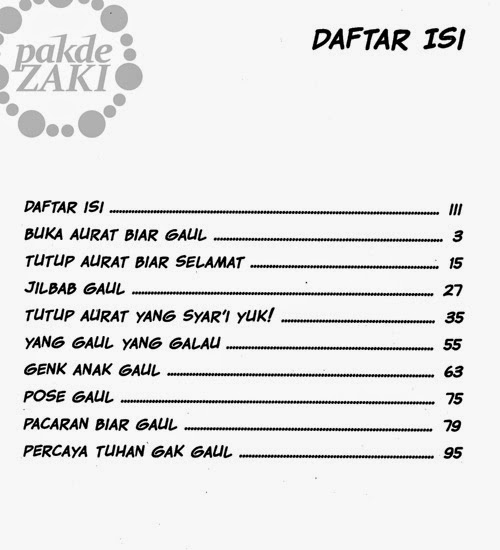 pakde
ZAKI
DAFTAR ISI
DAFTAR ISI ........ III
BUKA AURAT BIAR GAUL ........ 3
TUTUP AURAT BIAR SELAMAT ........ 15
JILBAB GAUL ........ 27
TUTUP AURAT YANG SYAR'I YUK! ........ 35
YANG GAUL YANG GALAU ........ 55
GENK ANAK GAUL ........ 63
POSE GAUL ........ 75
PACARAN BIAR GAUL ........ 79
PERCAYA TUHAN GAK GAUL ........ 95